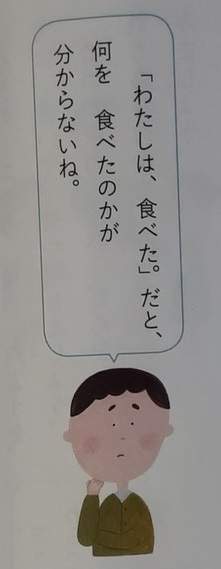 「わたしは、食べた。」だと、
何を　食べたのかが
分からないね。